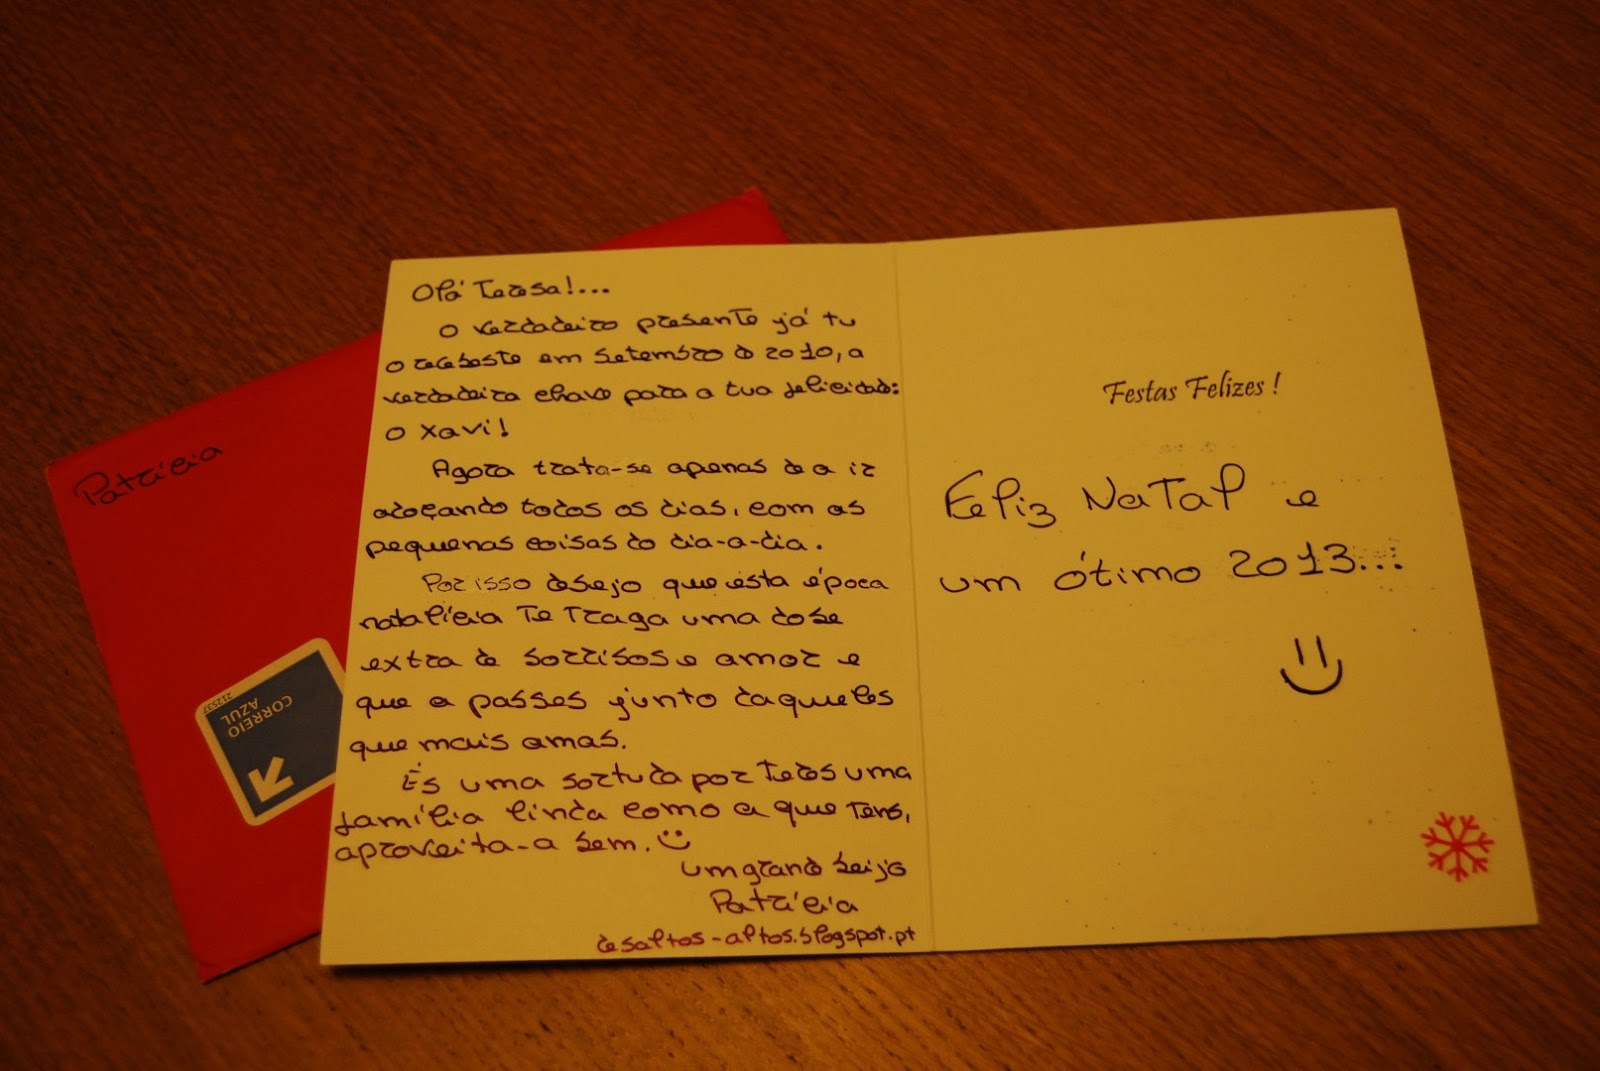 Patrícia
CORREIO
AZUL
212537
Olá Teresa!...
O verdadeiro presente já tu
o recebeste em Setembro de 2010, a
verdadeira chave para a tua felicidade:
O Xavi!
Agora trata-se apenas de a ir
adoçando todos os dias, com as
pequenas coisas do dia-a-dia.
Por isso desejo que esta época
natalícia Te Traga uma dose
extra de sorrisos e amor e
que a passes junto daqueles
que mais amas.
És uma sortuda por Teres uma
família linda como a que Tens,
aproveita-a bem.
um grande beijo
Patrícia
desaltos-altos.blogspot.pt
Festas Felizes !
Feliz Natal e
um ótimo 2013...